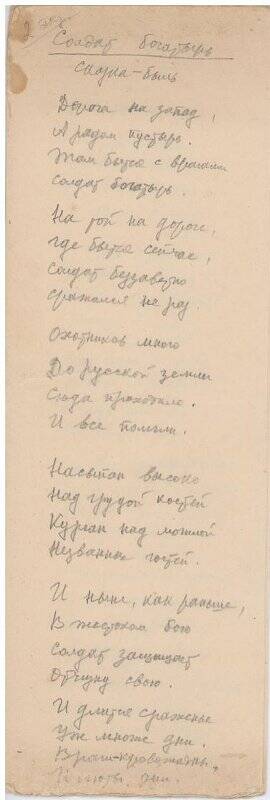 Солдат богатырь
сказка-быль
Дорога на запад,
А рядом пустырь.
Там бьется с врагами
Солдат богатырь.
На той на дороге,
где бьется сейчас,
Солдат беззаветно
сражался не раз.
Охотников много
До русской земли
Сюда приходило.
И все полегли.
Насыпан высоко
Над грудой костей
Курган над могилой
Незванных гостей.
И ныне, как раньше,
В жестоком бою
Солдат защищает
Отчизну свою.
И длится сраженье
Уж многие дни.
Враги-кровожадны,
И люты они.